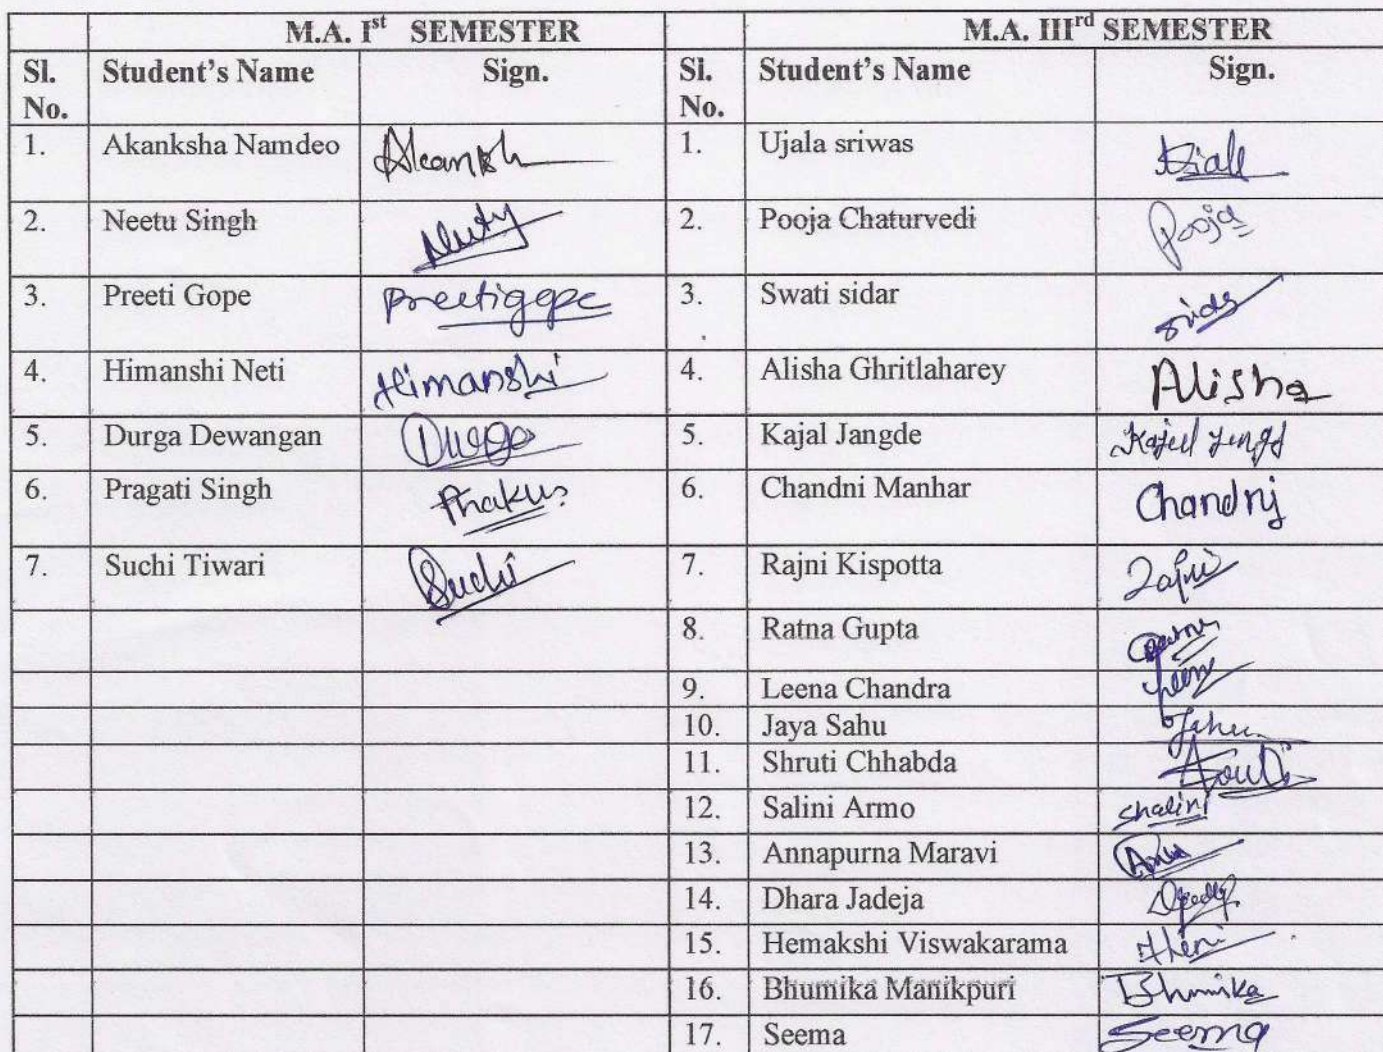 M.A. Ist SEMESTER M.A. IIIrd SEMESTER
Sl. No. Student's Name Sign. Sl. No. Student's Name Sign.
1. Akanksha Namdeo 1. Ujala sriwas
2. Neetu Singh 2. Pooja Chaturvedi Pooja
3. Preeti Gope Preetigope 3. Swati sidar
4. Himanshi Neti Himanshi 4. Alisha Ghritlaharey Alisha
5. Durga Dewangan 5. Kajal Jangde
6. Pragati Singh 6. Chandni Manhar Chandni
7. Suchi Tiwari Suchi 7. Rajni Kispotta
8. Ratna Gupta
9. Leena Chandra
10. Jaya Sahu
11. Shruti Chhabda
12. Salini Armo Shalini
13. Annapurna Maravi
14. Dhara Jadeja
15. Hemakshi Viswakarama
16. Bhumika Manikpuri Bhumika
17. Seema Seema